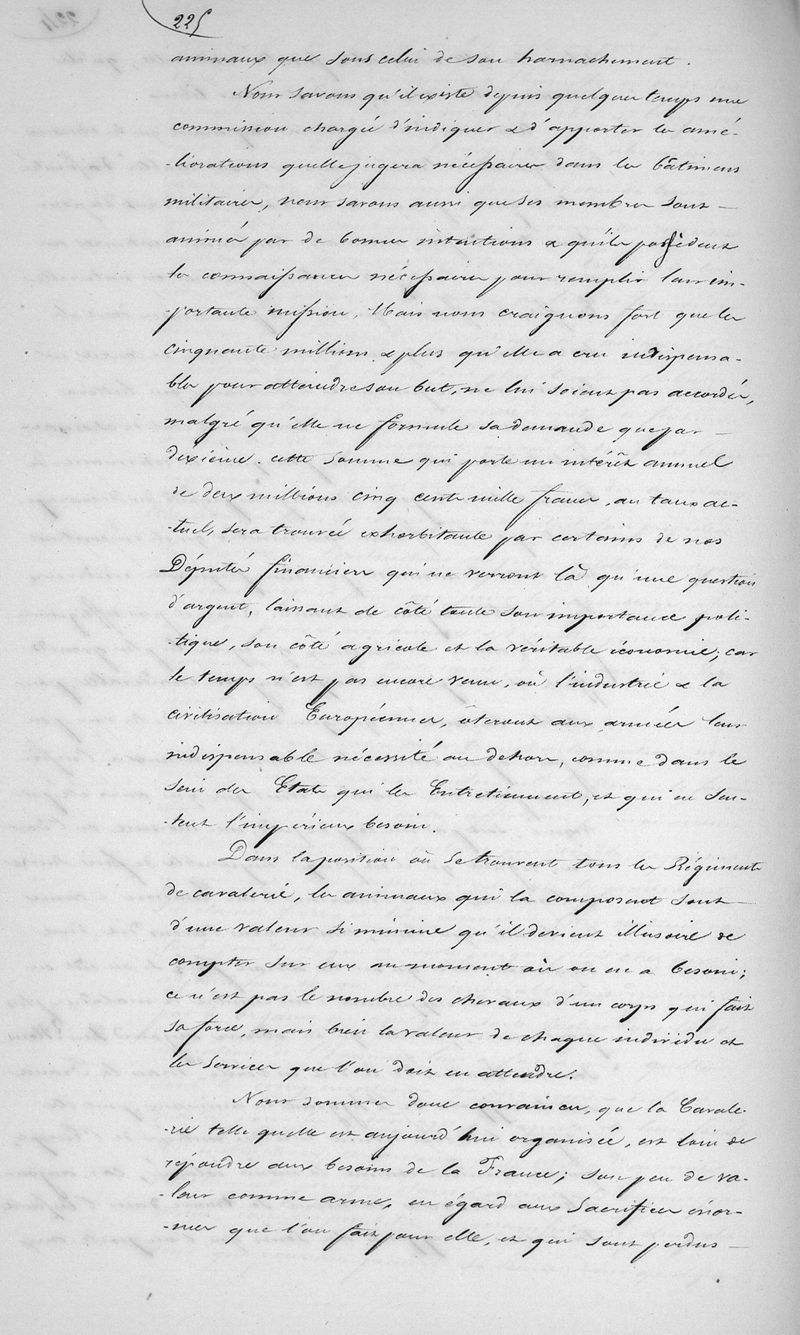 225
animaux que sous celui de son harnachement.
Nous savons qu'il existe depuis quelques temps une
commission chargée d'indiquer & d'apporter les amé-
-liorations quelle jugera nécessaires dans les bâtimens
militaires, nous savons aussi que ses membres sont —
animés par de bonnes intentions & qu'ils possèdent
les connaissances nécessaires pour remplir leur im-
-portante mission, Mais nous craignons fort que les
cinquante millions & plus qu'elle a cru indispensa-
bles pour atteindre son but, ne lui soient pas accordés,
malgré qu'elle ne formule sa demande que par —
dixième. cette somme qui porte un intérêt annuel
de deux millions cinq cent mille francs, au taux ac-
-tuel, sera trouvée exhorbitante par certains de nos
Députés financiers qui ne verront là qu'une question
d'argent, laissant de côté toute son importance poli-
-tique, son côté agricole et la véritable économie; car
le temps n'est pas encore venu, où l'industrie & la
civilisation Européennes, ôteront aux armées leur
indispensable nécessité au dehors, comme dans le
sein des Etats qui les Entretiennent, et qui en sen-
-tent l'impérieux besoin.
Dans la position où se trouvent tous les Régiments
de cavalerie, les animaux qui la composent sont —
d'une valeur si minime qu'il devient illusoire de
compter sur eux au moment où on en a besoin;
ce n'est pas le nombre des chevaux d'un corps qui fait
sa force, mais bien la valeur de chaque individu et
les services que l'on doit en attendre.
Nous sommes donc convaincus, que la Cavale-
-rie telle quelle est aujourd'hui organisée, est loin de
répondre aux besoins de la France; son peu de va-
-leur comme arme, eu égard aux sacrifices énor-
-mes que l'on fait pour elle, et qui sont perdus —